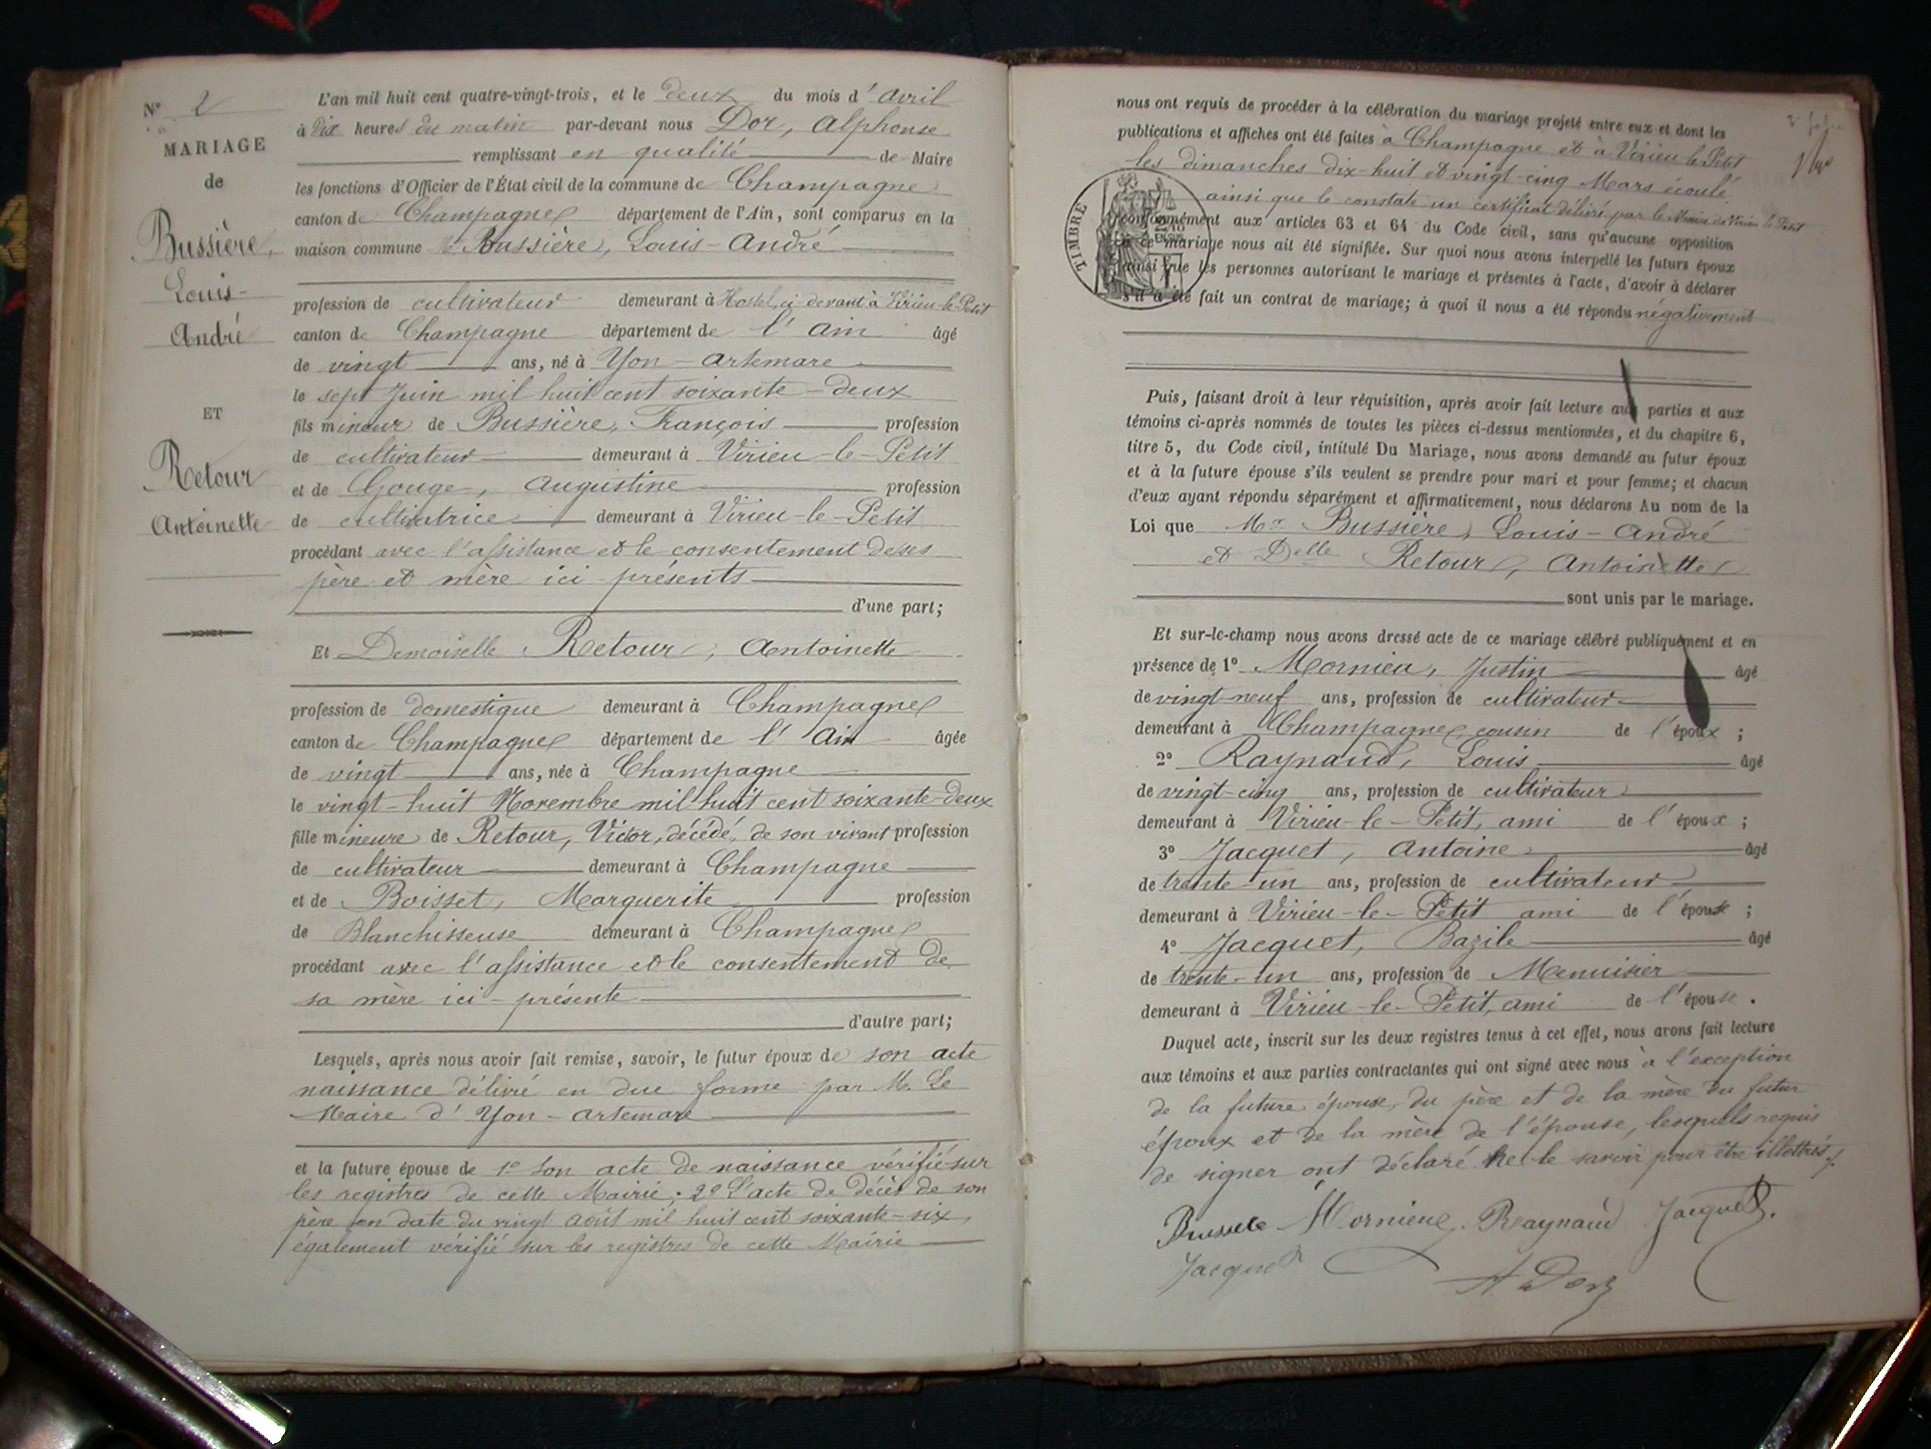 N° 2
MARIAGE
de
Bussière,
Louis-
André
ET
Retour
Antoinette
L'an mil huit cent quatre-vingt-trois, et le deux du mois d'avril
à dix heures du matin par-devant nous Dor, Alphonse
remplissant en qualité de Maire
les fonctions d'Officier de l'État civil de la commune de Champagne
canton de Champagne département de l'Ain, sont comparus en la
maison commune Bussière, Louis-André
profession de cultivateur demeurant à Hostel, ci-devant à Virieu-le-Petit
canton de Champagne département de l'Ain âgé
de vingt ans, né à Yon-Artemare
le sept Juin mil huit cent soixante-deux
fils mineur de Bussière, François profession
de cultivateur demeurant à Virieu-le-Petit
et de Gouge, Augustine profession
de cultivatrice demeurant à Virieu-le-Petit
procédant avec l'assistance et le consentement de ses
père et mère ici présents
d'une part;
Et Demoiselle Retour, Antoinette
profession de domestique demeurant à Champagne
canton de Champagne département de l'Ain âgée
de vingt ans, née à Champagne
le vingt-huit Novembre mil huit cent soixante-deux
fille mineure de Retour, Victor, décédé, de son vivant profession
de cultivateur demeurant à Champagne
et de Boisset, Marguerite profession
de Blanchisseuse demeurant à Champagne
procédant avec l'assistance et le consentement de
sa mère ici-présente
d'autre part;
Lesquels, après nous avoir fait remise, savoir, le futur époux de son acte
naissance délivré en due forme par M. Le
Maire d'Yon-Artemare
et la future épouse de 1° Son acte de naissance vérifié sur
les registres de cette Mairie; 2° L'acte de décès de son
père en date du vingt août mil huit cent soixante-six,
également vérifié sur les registres de cette Mairie
nous ont requis de procéder à la célébration du mariage projeté entre eux et dont les
publications et affiches ont été faites à Champagne et à Virieu le Petit
les dimanches dix-huit et vingt-cinq Mars écoulé
ainsi que le constate un certificat délivré par le Maire de Virieu le Petit
TIMBRE
conformément aux articles 63 et 64 du Code civil, sans qu'aucune opposition
à ce mariage nous ait été signifiée. Sur quoi nous avons interpellé les futurs époux
ainsi que les personnes autorisant le mariage et présentes à l'acte, d'avoir à déclarer
s'il a été fait un contrat de mariage; à quoi il nous a été répondu négativement
Puis, faisant droit à leur réquisition, après avoir fait lecture aux parties et aux
témoins ci-après nommés de toutes les pièces ci-dessus mentionnées, et du chapitre 6,
titre 5, du Code civil, intitulé Du Mariage, nous avons demandé au futur époux
et à la future épouse s'ils veulent se prendre pour mari et pour femme; et chacun
d'eux ayant répondu séparément et affirmativement, nous déclarons Au nom de la
Loi que Mr Bussière, Louis-André
et Delle Retour, Antoinette
sont unis par le mariage.
Et sur-le-champ nous avons dressé acte de ce mariage célébré publiquement et en
présence de 1° Mornieu, Justin âgé
de vingt-neuf ans, profession de cultivateur
demeurant à Champagne cousin de l'époux;
2° Raynaud, Louis âgé
de vingt-cinq ans, profession de cultivateur
demeurant à Virieu-le-Petit, ami de l'époux;
3° Jacquet, Antoine âgé
de trente-un ans, profession de cultivateur
demeurant à Virieu-le-Petit ami de l'épouse;
4° Jacquet, Bazile âgé
de trente-un ans, profession de Menuisier
demeurant à Virieu-le-Petit, ami de l'épouse.
Duquel acte, inscrit sur les deux registres tenus à cet effet, nous avons fait lecture
aux témoins et aux parties contractantes qui ont signé avec nous à l'exception
de la future épouse, du père et de la mère du futur
époux et de la mère de l'épouse, lesquels requis
de signer ont déclaré ne le savoir pour être illettrés
Mornieu Raynaud Jacquet
Jacquet
A Dor